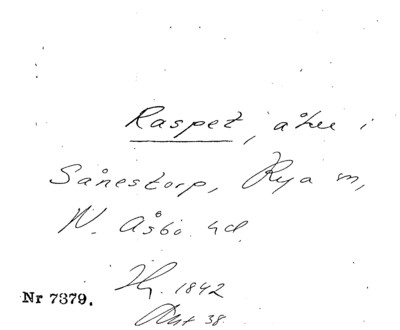 Raspet, åker i
Sånestorp, Rya sn,
N. Åsbo hd.
Hg. 1842
Nr 7379.
Akt 38.